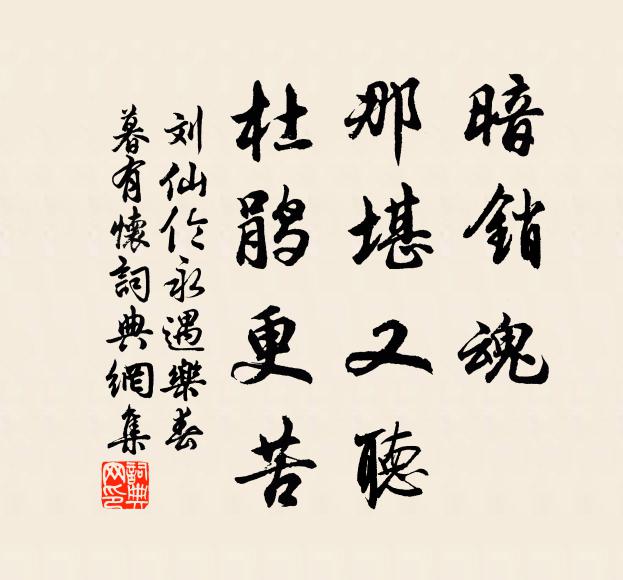 暗銷魂
那堪又聽
杜鹃更苦
刘仙伦永遇樂春
暮有懷詞典網集
詞典
网印